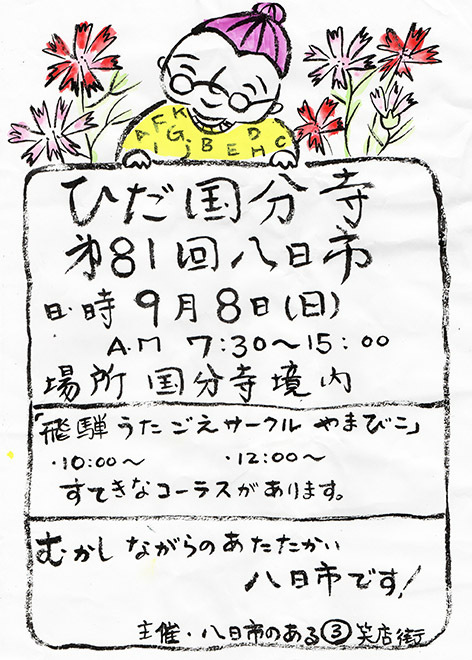 A F C K G I J B E D H C
ひだ国分寺
第81回八日市
日時 9月8日(日)
A.M 7:30～15:00
場所 国分寺境内
「飛騨うたごえサークル やまびこ」
・10:00～ ・12:00～
すてきなコーラスがあります。
むかしながらのあたたかい
八日市です!
主催・八日市のある③笑店街